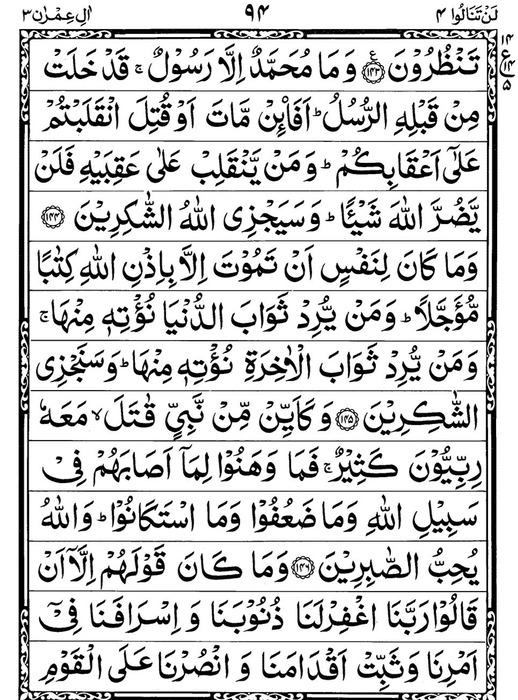 لَنْ تَنَالُوا ۴ ۹۴ اٰلِ عِمْرٰن ۳
۱۴
ع
۱۴
۵
تَنْظُرُوْنَ ﴿۱۴۳﴾ ع وَ مَا مُحَمَّدٌ اِلَّا رَسُوْلٌ ۚ قَدْ خَلَتْ
مِنْ قَبْلِهِ الرُّسُلُ ؕ اَفَا۠ئِنْ مَّاتَ اَوْ قُتِلَ انْقَلَبْتُمْ
عَلٰۤى اَعْقَابِكُمْ ؕ وَ مَنْ يَّنْقَلِبْ عَلٰى عَقِبَيْهِ فَلَنْ
يَّضُرَّ اللّٰهَ شَيْـًٔا ؕ وَ سَيَجْزِى اللّٰهُ الشّٰكِرِيْنَ ﴿۱۴۴﴾
وَمَا كَانَ لِنَفْسٍ اَنْ تَمُوْتَ اِلَّا بِاِذْنِ اللّٰهِ كِتٰبًا
مُّؤَجَّلًا ؕ وَ مَنْ يُّرِدْ ثَوَابَ الدُّنْيَا نُؤْتِهٖ مِنْهَا ۚ
وَ مَنْ يُّرِدْ ثَوَابَ الْاٰخِرَةِ نُؤْتِهٖ مِنْهَا ؕ وَ سَنَجْزِى
الشّٰكِرِيْنَ ﴿۱۴۵﴾ وَ كَاَيِّنْ مِّنْ نَّبِىٍّ قٰتَلَ ۙ مَعَهٗ
رِبِّيُّوْنَ كَثِيْرٌ ۚ فَمَا وَهَنُوْا لِمَاۤ اَصَابَهُمْ فِىْ
سَبِيْلِ اللّٰهِ وَ مَا ضَعُفُوْا وَ مَا اسْتَكَانُوْا ؕ وَ اللّٰهُ
يُحِبُّ الصّٰبِرِيْنَ ﴿۱۴۶﴾ وَ مَا كَانَ قَوْلَهُمْ اِلَّاۤ اَنْ
قَالُوْا رَبَّنَا اغْفِرْ لَنَا ذُنُوْبَنَا وَ اِسْرَافَنَا فِىْۤ
اَمْرِنَا وَ ثَبِّتْ اَقْدَامَنَا وَ انْصُرْنَا عَلَى الْقَوْمِ